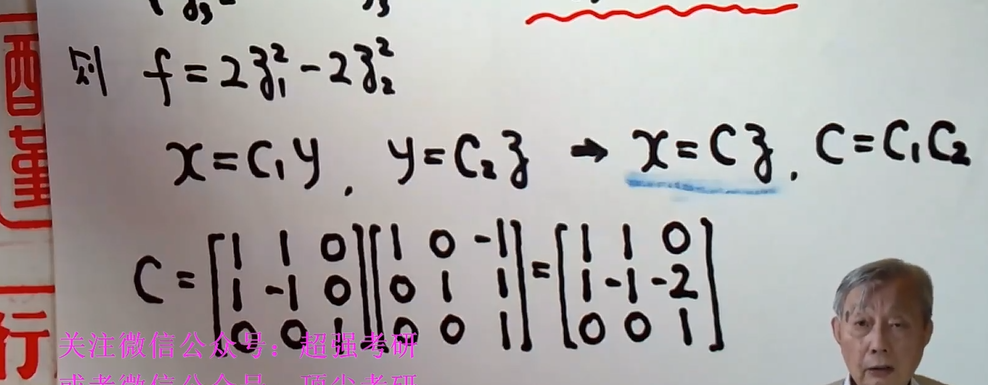 则 f = 2z₁² - 2z₂²
x = C₁y, y = C₂z → x = Cz, C = C₁C₂
C = [1 1 0; 1 -1 0; 0 0 1][1 0 -1; 0 1 1; 0 0 1] = [1 1 0; 1 -1 -2; 0 0 1]
关注微信公众号：超强考研
行